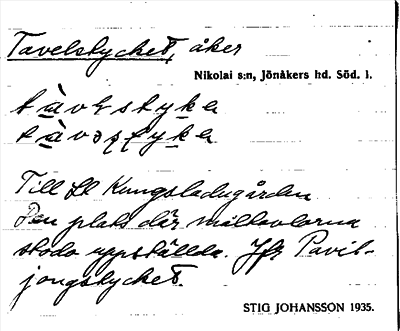 Tavelstycket, åker
Nikolai s:n, Jönåkers hd. Söd. l.
Till St Kungsladugården
Den plats där måltavlorna
stodo uppställda. Jfr Pavil-
jongstycket.
STIG JOHANSSON 1935.